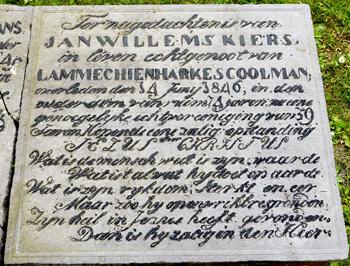 Ter nagedachtenis van
JAN WILLEMS KIERS,
in leven echtgenoot van
LAMMECHIEN HARKES COOLMAN,
overleden den 14 Juny 1846, in den
ouderdom van ruim 74 jaren, na eene
genoegelyke echtvereeniging van 39
Jaren Hopende eene zalig opstanding
JEZUS CHRISTUS
Wat is de mensch wat is zyn waarde
Wat is al wat hy doet op aard
Wat is zyn rykdom, sterkt en eer
Maar zoo hy onwrikbre gronden
Zyn heil in Jezus heeft gevonden
Dan is hy zalig in den Heer